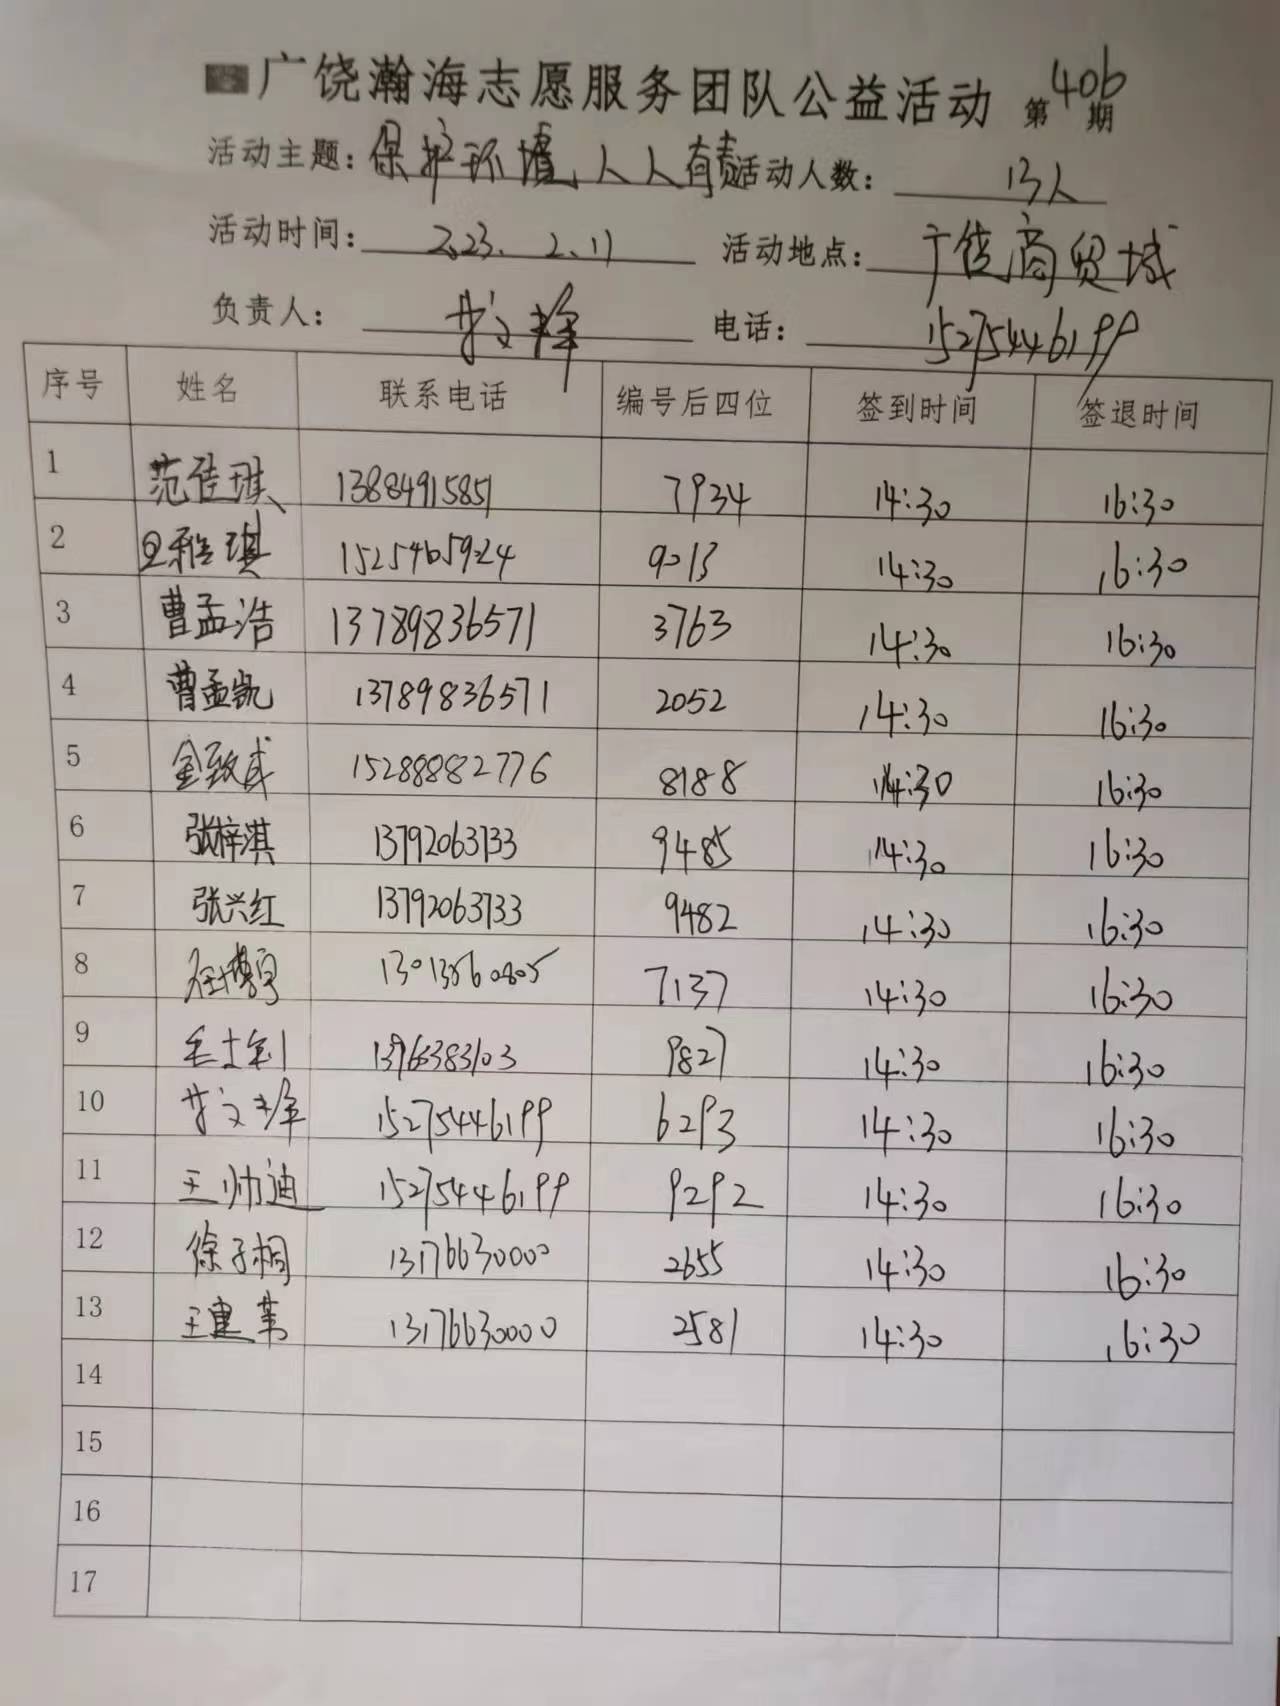 广饶瀚海志愿服务团队公益活动 第406期
活动主题：保护环境，人人有责 活动人数：13人
活动时间：2023.2.11 活动地点：广饶商贸城
负责人： 电话：15275446199
序号 姓名 联系电话 编号后四位 签到时间 签退时间
1 范佳琪 13884915851 7934 14:30 16:30
2 雅琪 15254605924 9013 14:30 16:30
3 曹孟浩 13789836571 3763 14:30 16:30
4 曹孟凯 13789836571 2052 14:30 16:30
5 金致成 15288882776 8188 14:30 16:30
6 张梓淇 13792063733 9485 14:30 16:30
7 张兴红 13792063733 9482 14:30 16:30
8 任博宇 7137 14:30 16:30
9 9827 14:30 16:30
10 15275446199 6293 14:30 16:30
11 王帅迪 15275446199 9292 14:30 16:30
12 徐子桐 13176630000 2655 14:30 16:30
13 王建苇 13176630000 2581 14:30 16:30
14
15
16
17